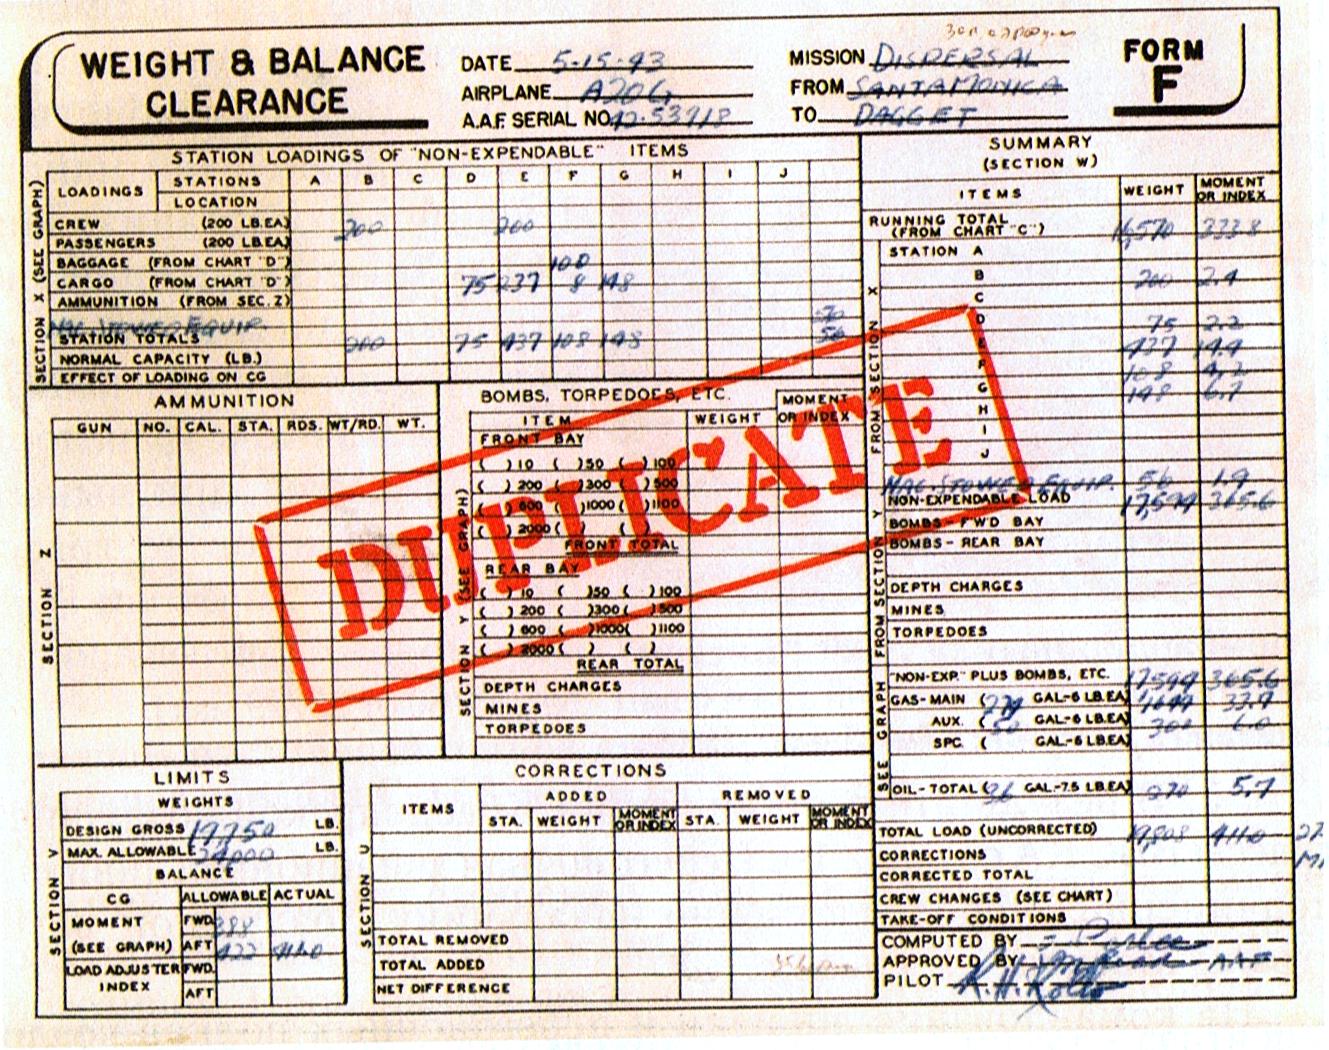 WEIGHT & BALANCE
CLEARANCE
DATE 5-15-43
AIRPLANE A20G
A.A.F. SERIAL NO.
MISSION DISPERSAL
FROM SANTA MONICA
TO DAGGET
FORM
F
STATION LOADINGS OF "NON-EXPENDABLE" ITEMS
SECTION X (SEE GRAPH)
LOADINGS STATIONS A B C D E F G H I J
LOCATION
CREW (200 LB.EA) 200 200
PASSENGERS (200 LB.EA)
BAGGAGE (FROM CHART "D") 100
CARGO (FROM CHART "D") 75 237 8 148
AMMUNITION (FROM SEC. Z)
MAC. STOWED EQUIP. 56
STATION TOTALS 200 75 437 108 148 56
NORMAL CAPACITY (LB.)
EFFECT OF LOADING ON CG
SUMMARY
(SECTION W)
ITEMS WEIGHT MOMENT OR INDEX
RUNNING TOTAL
(FROM CHART "C") 16,570 333.8
FROM SECTION X
STATION A
B 200 2.4
C
D 75 2.2
E 437 14.4
F 108 4.2
G 148 6.7
H
I
J
MAC. STOWED EQUIP. 56 1.9
NON-EXPENDABLE LOAD 17,594 365.6
FROM SECTION Y
BOMBS-FW'D BAY
BOMBS-REAR BAY
DEPTH CHARGES
MINES
TORPEDOES
SEE GRAPH
"NON-EXP." PLUS BOMBS, ETC. 17594 365.6
GAS-MAIN (274 GAL-6 LB.EA) 1644 33.7
AUX. (50 GAL-6 LB.EA) 300 6.0
SPC. ( GAL-6 LB.EA)
OIL-TOTAL (36 GAL-7.5 LB.EA) 270 5.7
TOTAL LOAD (UNCORRECTED) 19,808 411.0
CORRECTIONS
CORRECTED TOTAL
CREW CHANGES (SEE CHART)
TAKE-OFF CONDITIONS
COMPUTED BY
APPROVED BY AAF
PILOT
AMMUNITION
SECTION Z
GUN NO. CAL. STA. RDS. WT/RD. WT.
BOMBS, TORPEDOES, ETC.
SECTION Y (SEE GRAPH)
ITEM WEIGHT MOMENT OR INDEX
FRONT BAY
( ) 10 ( ) 50 ( ) 100
( ) 200 ( ) 300 ( ) 500
( ) 600 ( ) 1000 ( ) 1100
( ) 2000 ( ) ( )
FRONT TOTAL
REAR BAY
( ) 10 ( ) 50 ( ) 100
( ) 200 ( ) 300 ( ) 500
( ) 600 ( ) 1000 ( ) 1100
( ) 2000 ( ) ( )
REAR TOTAL
DEPTH CHARGES
MINES
TORPEDOES
DUPLICATE
LIMITS
SECTION V
WEIGHTS
DESIGN GROSS 19750 LB.
MAX. ALLOWABLE 24,000 LB.
BALANCE
CG ALLOWABLE ACTUAL
MOMENT FWD. 388
(SEE GRAPH) AFT 422 411.0
LOAD ADJUSTER FWD.
INDEX AFT
CORRECTIONS
SECTION U
ITEMS ADDED REMOVED
STA. WEIGHT MOMENT OR INDEX STA. WEIGHT MOMENT OR INDEX
TOTAL REMOVED
TOTAL ADDED
NET DIFFERENCE